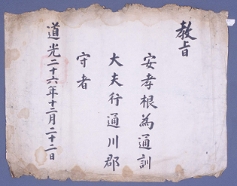 敎旨
安孝根為通訓
大夫行通川郡
守者
道光二十六年十二月二十二日